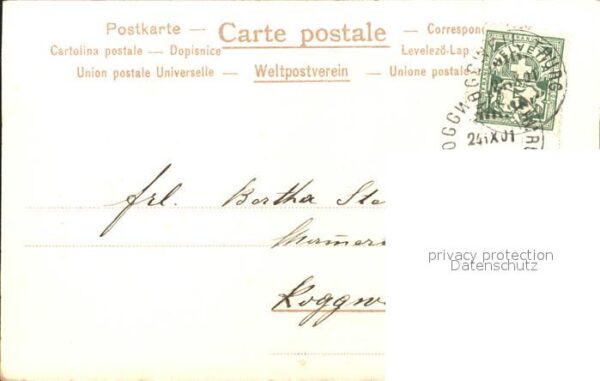 Postkarte — Carte postale — Correspon
Cartolina postale — Dopisnice Levelező-Lap
Union postale Universelle — Weltpostverein — Unione postale
24 IX 01
frl. Bertha Ste
Roggw
privacy protection
Datenschutz